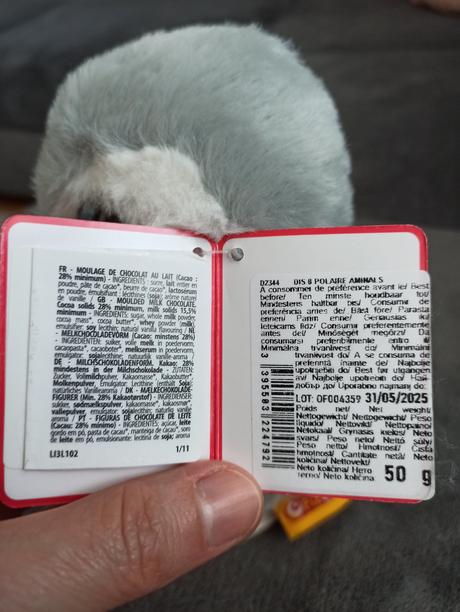 FR - MOULAGE DE CHOCOLAT AU LAIT (Cacao :
28% minimum) - INGRÉDIENTS : sucre, lait entier en
poudre, pâte de cacao*, beurre de cacao*, lactosérum
en poudre, émulsifiant : lécithines (soja); arôme naturel
de vanille / GB - MOULDED MILK CHOCOLATE.
Cocoa solids 28% minimum, milk solids 15,5%
minimum - INGREDIENTS: sugar, whole milk powder,
cocoa mass*, cocoa butter*, whey powder (milk),
emulsifier: soy lecithin; natural vanilla flavouring / NL
- MELKCHOCOLADEVORM (Cacao: minstens 28%)
- INGREDIËNTEN: suiker, volle melk in poedervorm,
cacaopasta*, cacaoboter*, melkserum in poedervorm,
emulgator: sojalecithine; natuurlijk vanille-aroma /
DE - MILCHSCHOKOLADENFORM. Kakao: 28%
mindestens in der Milchschokolade - ZUTATEN:
Zucker, Vollmilchpulver, Kakaomasse*, Kakaobutter*,
Molkenpulver, Emulgator: Lecithine (enthält Soja);
natürliches Vanillearoma / DK - MÆLKECHOKOLADE-
FIGURER (Min. 28% Kakaotørstof) - INGREDIENSER:
sukker, sødmælkspulver, kakaomasse*, kakaosmør*,
vallepulver, emulgator: sojalecithin; naturlig vanille
aroma / PT - FIGURAS DE CHOCOLATE DE LEITE
(Cacau: 28% mínimo) - INGREDIENTES: açúcar, leite
gordo em pó, pasta de cacau*, manteiga de cacau*, soro
de leite em pó, emulsionante: lecitina de soja; aroma
LI3L102 1/11
DZ344 DIS 8 POLAIRE AMINALS
A consommer de préférence avant le/ Best
before/ Ten minste houdbaar tot/
Mindestens haltbar bis/ Consumir de
preferência antes de/ Bäst före/ Parasta
ennen/ Parim enne/ Geriausias iki/
Ieteicams līdz/ Consumir preferentemente
antes del/ Minőségét megőrzi/ Da
consumarsi preferibilmente entro il/
Minimálna trvanlivosť do/ Minimální
trvanlivost do/ A se consuma de
preferință înainte de/ Najbolje
upotrijebiti do/ Best før
31/05/2025
LOT: OF004359
Poids net/ Net weight/
Nettovægt/ Nettogewicht/ Peso
líquido/ Nettovikt/ Nettopaino/
Netokaal/ Grynasis kiekis/ Neto
svars/ Peso neto/ Nettó súly/
Peso netto/ Hmotnosť/ Čistá
hmotnost/ Cantitate netă/ Neto
količina/ Nettovekt/
Neto količina/ Нето
тегло/ Neto količina 50 g